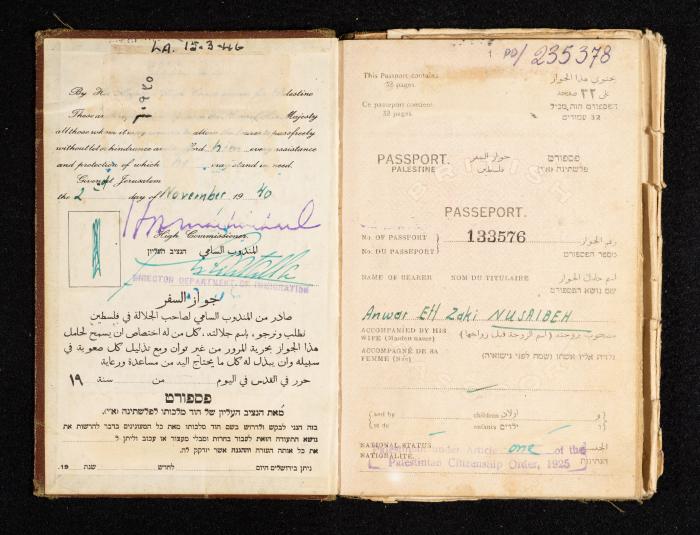 LA. 15-3-46
By H
These a Majesty
all those whom it may concern to allow the bearer to pass freely
without let or hindrance and to afford him every assistance
and protection of which he may stand in need.
Given at Jerusalem
the 2nd day of November 1940
High Commissioner.
المندوب السامي הנציב העליון
DIRECTOR DEPARTMENT OF IMMIGRATION
جواز السفر
صادر من المندوب السامي لصاحب الجلالة في فلسطين
نطلب ونرجو، باسم جلالته، كل من له اختصاص ان يسمح لحامل
هذا الجواز بحرية المرور من غير توان ومع تذليل كل صعوبة في
سبيله وان يبذل له كل ما يحتاج اليه من مساعدة ورعاية
حرر في القدس في اليوم من سنة ١٩
פספורט
מאת הנציב העליון של הוד מלכותו לפלשתינה (א״י).
בזה הנני לבקש ולדרוש בשם הוד מלכותו מאת כל המעונינים בדבר להרשות את
נושא התעודה הזאת לעבור בחרות ומבלי מעצור או עכוב וליתן לו
את כל אותה העזרה וההגנה אשר יזדקק לה.
ניתן בירושלים היום לחדש שנת 19.
1 PD/235378
This Passport contains يحتوي هذا الجواز
32 pages. على ٣٢ صفحة
Ce passeport contient הפספורט הזה מכיל
32 pages. 32 עמודים
PASSPORT. جواز السفر פספורט
PALESTINE فلسطين פלשתינה (א״י)
PASSEPORT.
No. OF PASSPORT 133576 رقم الجواز
No. DU PASSEPORT מספר הפספורט
NAME OF BEARER NOM DU TITULAIRE اسم حامل الجواز
שם נושא הפספורט
Anwar Eff Zaki NUSAIBEH
ACCOMPANIED BY HIS مصحوب بزوجته (اسم الزوجة قبل زواجها)
WIFE (Maiden name)
ACCOMPAGNÉ DE SA נלוית אליו אשתו (שמה לפני נשואיה)
FEMME (Née)
and by children اولاد و
et de enfants ילדים ו
NATIONAL STATUS الجنسية
NATIONALITÉ. הנתינות
under Article one of the
Palestinian Citizenship Order, 1925